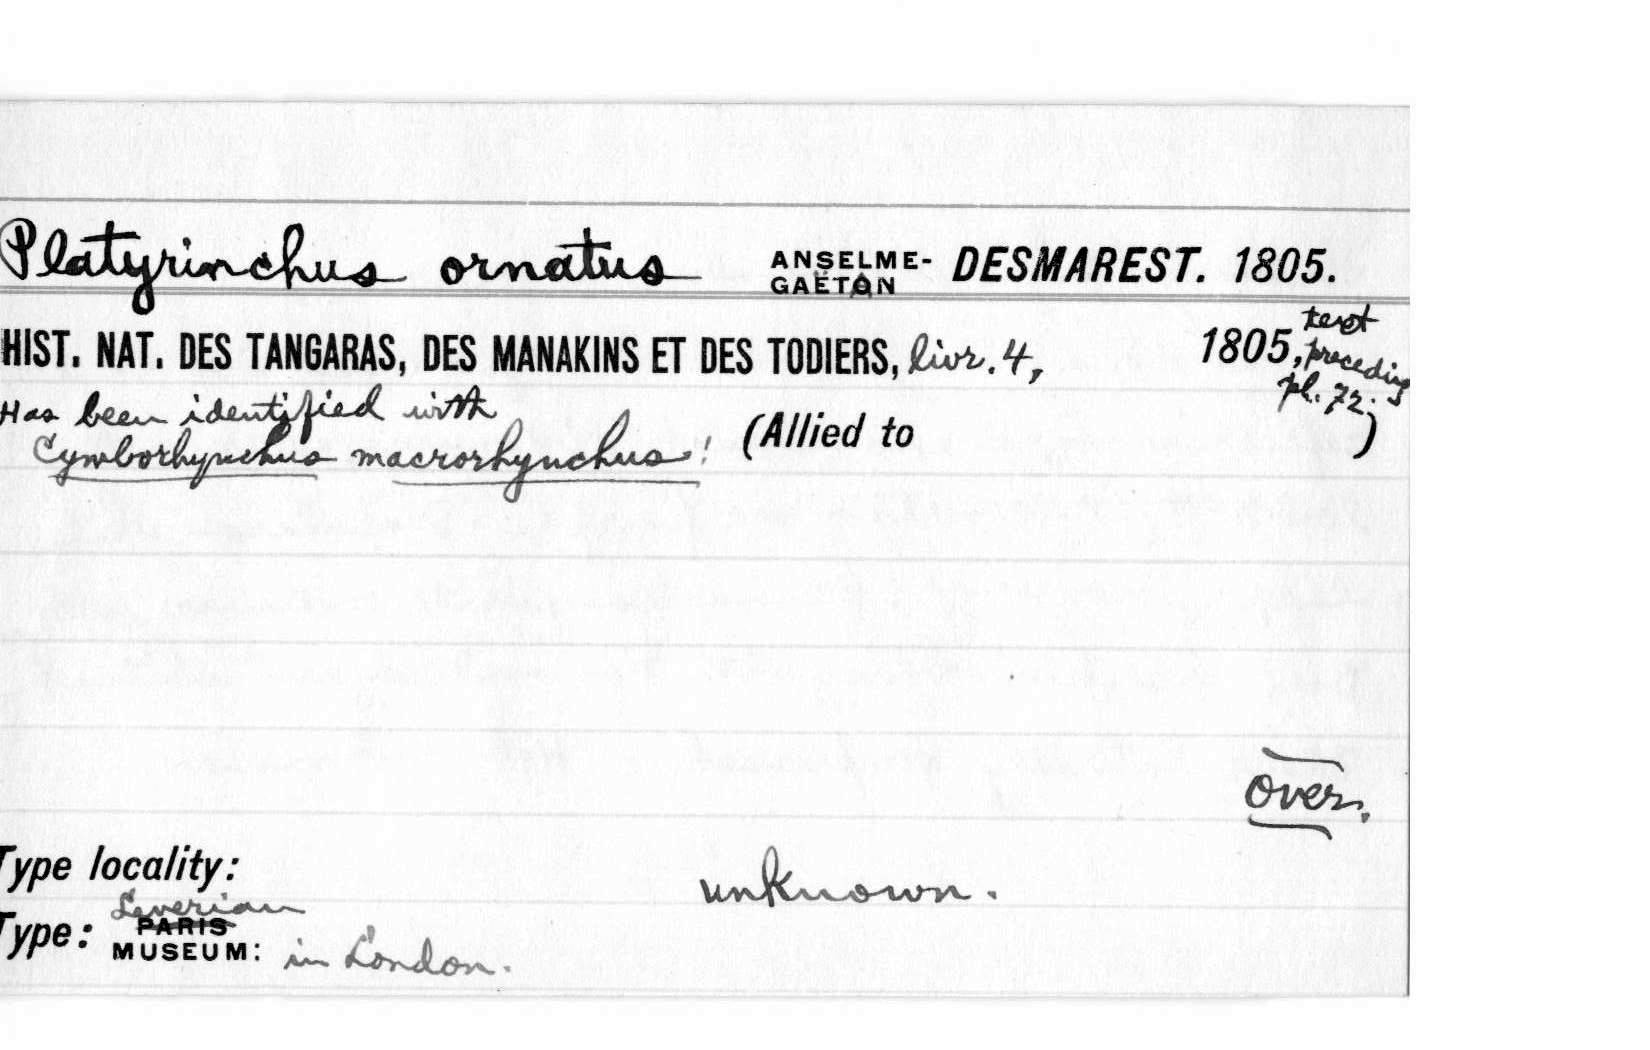 Platyrinchus ornatus ANSELME-GAËTAN DESMAREST. 1805.
HIST. NAT. DES TANGARAS, DES MANAKINS ET DES TODIERS, livr. 4, 1805, text preceding pl. 72.
Has been identified with
Cymborhynchus macrorhynchus! (Allied to )
over.
Type locality: unknown.
Type: Leverian PARIS MUSEUM: in London.